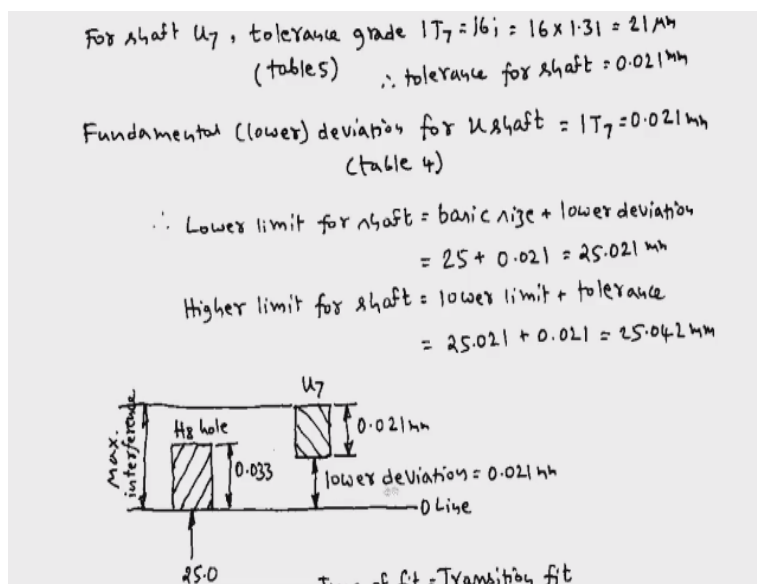 For shaft U7, tolerance grade IT7 = 16i = 16 x 1.31 = 21 µm
(table 5) ∴ tolerance for shaft = 0.021 mm
Fundamental (lower) deviation for u shaft = IT7 = 0.021 mm
(table 4)
∴ Lower limit for shaft = basic size + lower deviation
= 25 + 0.021 = 25.021 mm
Higher limit for shaft = lower limit + tolerance
= 25.021 + 0.021 = 25.042 mm
U7
Max. interference
H8 hole
0.021 mm
0.033
lower deviation = 0.021 mm
0 Line
25.0
of fit = Transition fit